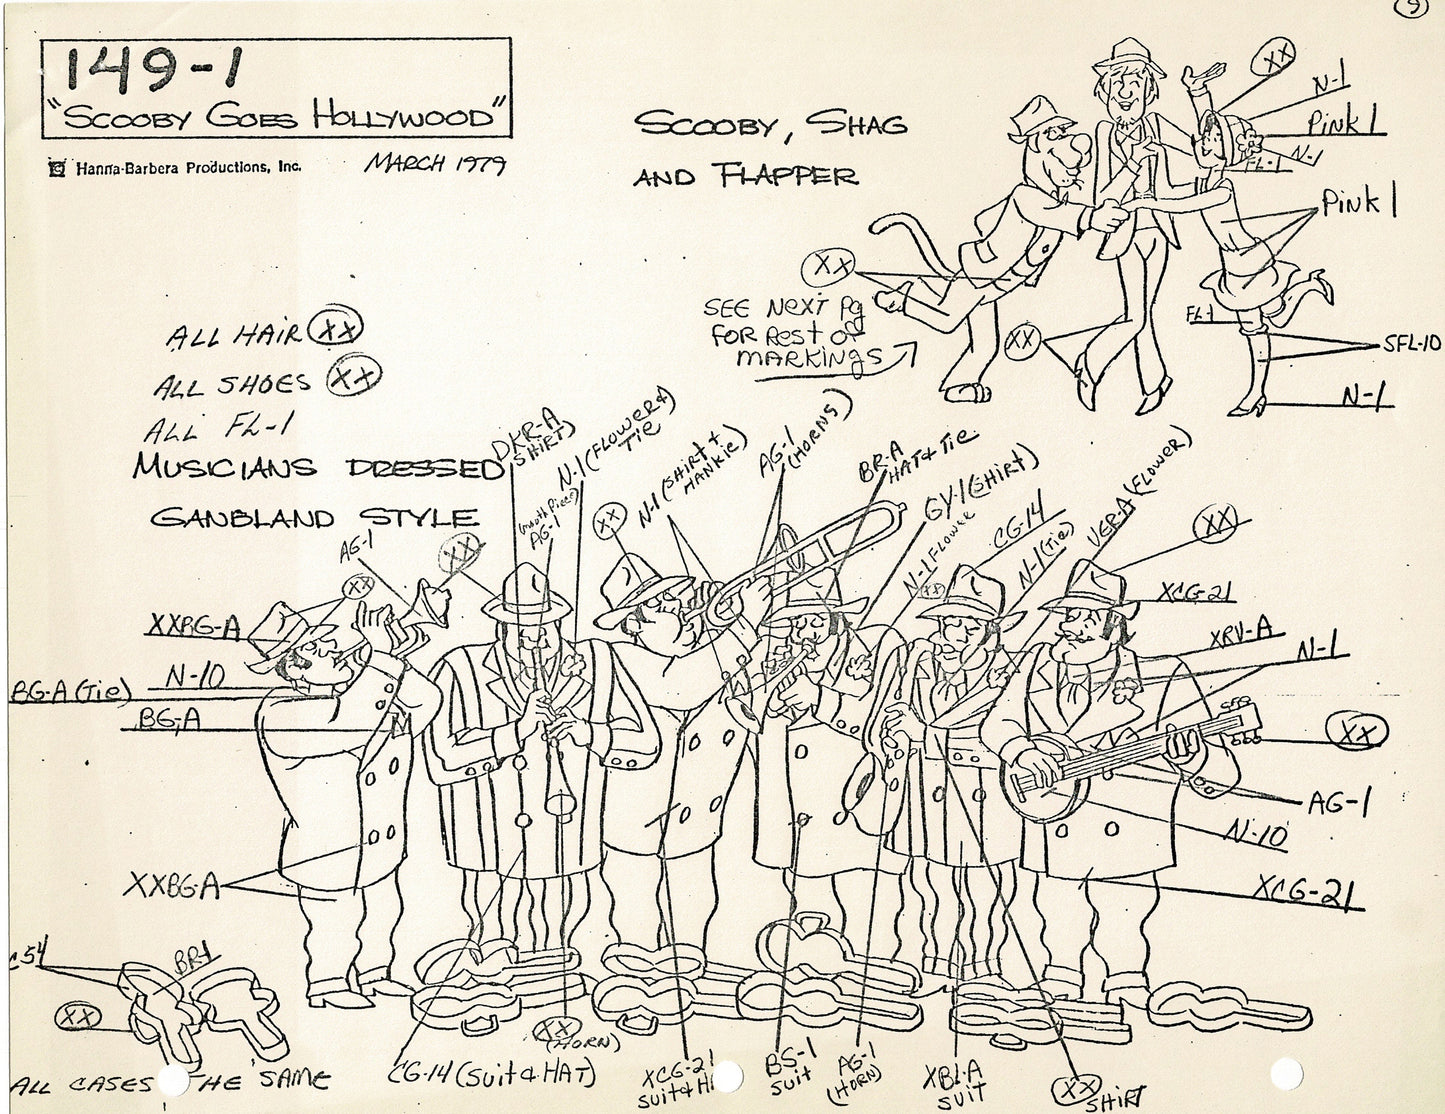 9
149-1
"SCOOBY GOES HOLLYWOOD"
Hanna-Barbera Productions, Inc.
MARCH 1979
SCOOBY, SHAG
AND FLAPPER
XX
N-1
PINK 1
N-1
FL-1
PINK 1
XX
SEE NEXT pg
FOR REST OF
MARKINGS
XX
FL-1
SFL-10
N-1
ALL HAIR XX
ALL SHOES XX
ALL FL-1
MUSICIANS DRESSED
GANBLAND STYLE
AG-1
XX
XX
DKR-A
SHIRT)
(mouth Piece)
AG-1
N-1 (FLOWER &
TIE
XX
N-1 (SHIRT +
HANKIE)
AG-1
(HORNS)
BR-A
HAT & TIE
GY-1 (SHIRT)
N-1 FLOWER
XX
CG-14
N-1 (TIE)
VER-A (FLOWER)
XX
XXBG-A
N-10
BG-A (TIE)
BG-A
XCG-21
XRV-A
N-1
XX
AG-1
N-10
XCG-21
XXBG-A
C54
BR-1
XX
ALL CASES HE SAME
CG-14 (SUIT & HAT)
XX
(HORN)
XCG-21
SUIT & H
BS-1
SUIT
AG-1
(HORN)
XBL-A
SUIT
XX
SHIRT